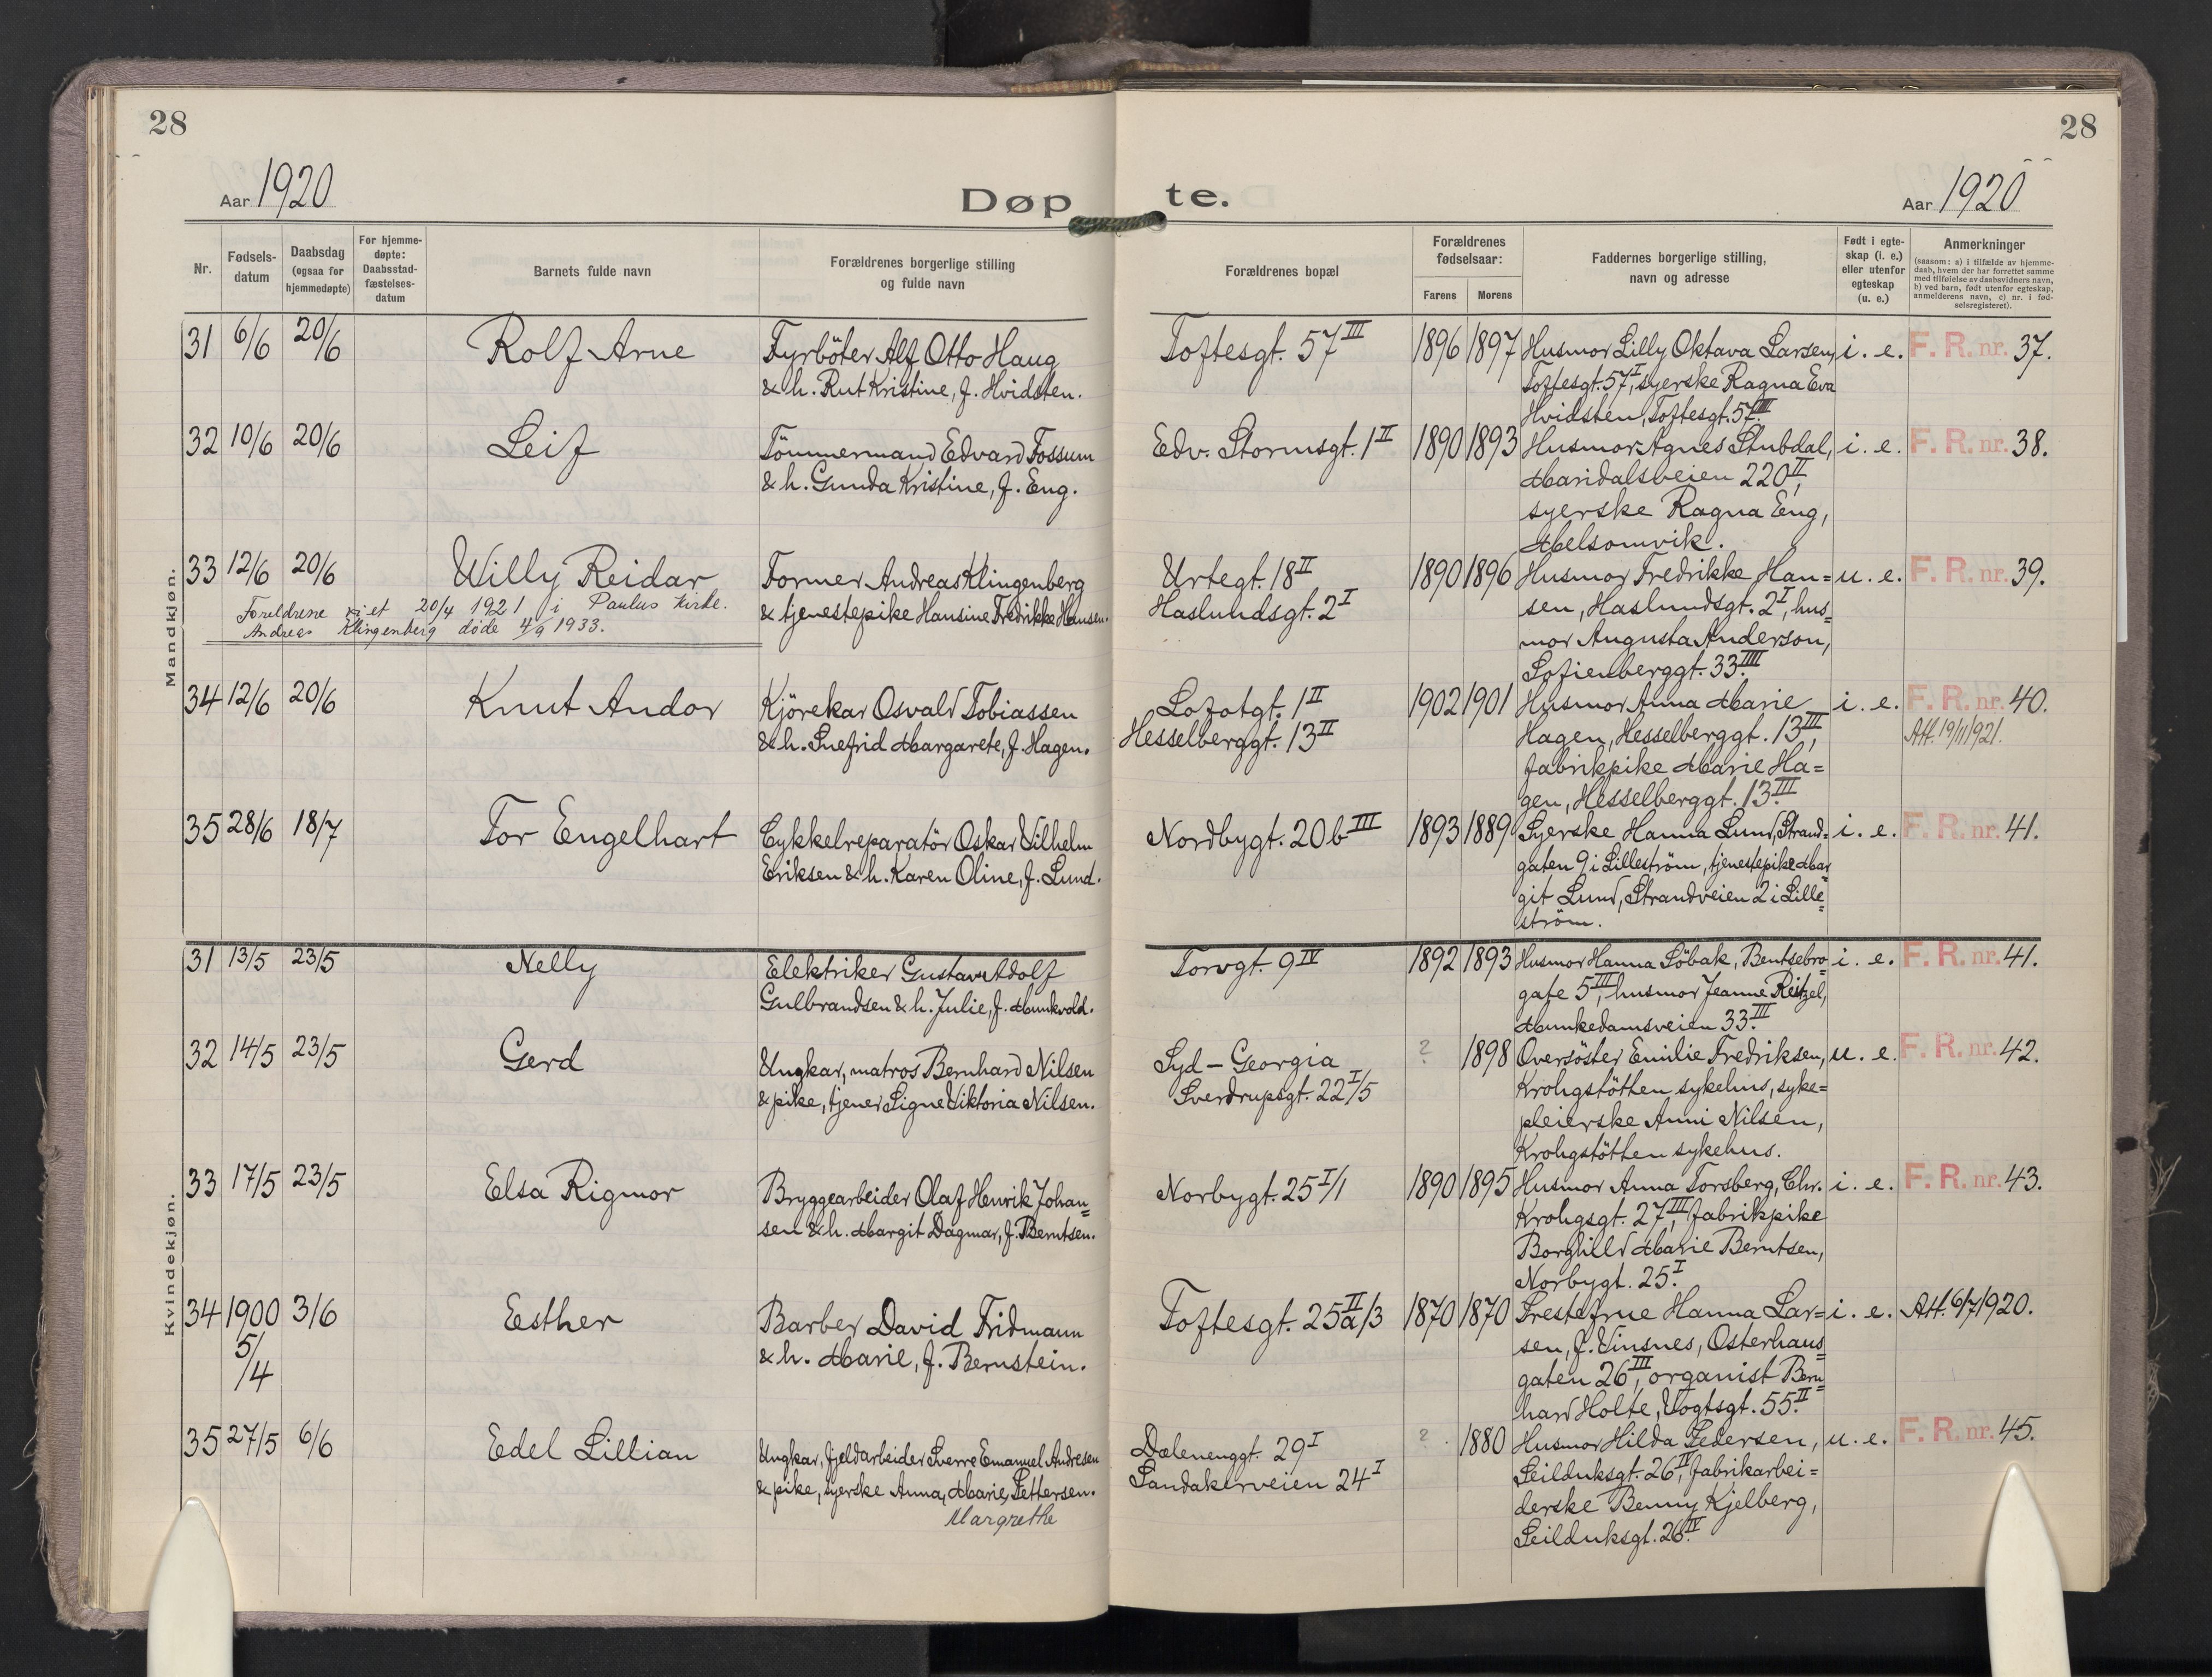 28
28
Aar 1920
Døpte.
Aar 1920
Nr.
Fødsels-
datum
Daabsdag
(ogsaa for
hjemmedøpte)
For hjemme-
døpte:
Daabsstad-
fæstelses-
datum
Barnets fulde navn
Forældrenes borgerlige stilling
og fulde navn
Forældrenes bopæl
Forældrenes
fødselsaar:
Farens
Morens
Faddernes borgerlige stilling,
navn og adresse
Født i egte-
skap (i. e.)
eller utenfor
egteskap
(u. e.)
Anmerkninger
(saasom: a) i tilfælde av hjemme-
daab, hvem der har forrettet samme
med tilføielse av daabsvidners navn,
b) ved barn, født utenfor egteskap,
anmelderens navn, c) nr. i fød-
selsregisteret).
Mandkjøn.
31 6/6 20/6 Rolf Arne
Fyrböter Alf Otto Haug
& h. Rut Kristine, f. Hvidsten.
Toftesgt. 57 III
1896 1897
Husmor Lilly Oktava Larsen,
Toftesgt. 57 I, syerske Ragna Eva
Hvidsten, Toftesgt. 57 III.
i. e. F. R. nr. 37.
32 10/6 20/6 Leif
Tömmermand Edvard Fossum
& h. Gunda Kristine, f. Eng.
Edv. Stormsgt. 1 II
1890 1893
Husmor Agnes Stubdal,
Maridalsveien 220 II,
syerske Ragna Eng,
Melsomvik.
i. e. F. R. nr. 38.
33 12/6 20/6 Willy Reidar
Foreldrene viet 20/4 1921 i Paulus kirke.
Andreas Klingenberg døde 4/9 1933.
Former Andreas Klingenberg
& tjenestepike Hansine Fredrikke Hansen.
Urtegt. 18 II
Haslundsgt. 2 I
1890 1896
Husmor Fredrikke Han=
sen, Haslundsgt. 2 I, hus=
mor Augusta Anderson,
Sofienberggt. 33 IIII.
u. e. F. R. nr. 39.
34 12/6 20/6 Knut Andor
Kjörekar Osvald Tobiassen
& h. Snefrid Margarete, f. Hagen.
Lofotgt. 1 II
Hesselberggt. 13 II
1902 1901
Husmor Anna Marie
Hagen, Hesselberggt. 13 III,
fabrikpike Marie Ha=
gen, Hesselberggt. 13 III.
i. e. F. R. nr. 40.
Att. 19/11/921.
35 28/6 18/7 Tor Engelhart
Cykkelreparatör Oskar Vilhelm
Eriksen & h. Karen Oline, f. Lund.
Nordbygt. 20b III
1893 1889
Syerske Hanna Lund, Strand=
gaten 9 i Lilleström, tjenestepike Mar=
git Lund, Strandveien 2 i Lille=
ström.
i. e. F. R. nr. 41.
Kvindekjøn.
31 13/5 23/5 Nelly
Elektriker Gustav Adolf
Gulbrandsen & h. Julie, f. Munkvold.
Torvgt. 9 IV
1892 1893
Husmor Hanna Löbak, Bentsebro=
gate 5 III, husmor Jeanne Reitzel,
Munkedamsveien 33 III.
i. e. F. R. nr. 41.
32 14/5 23/5 Gerd
Ungkar, matros Bernhard Nilsen
& pike, tjener Signe Viktoria Nilsen.
Syd-Georgia
Sverdrupsgt. 22 I/5
? 1898
Oversöster Emilie Fredriksen,
Krohgstötten sykehus, syke=
pleierske Anni Nilsen,
Krohgstötten sykehus.
u. e. F. R. nr. 42.
33 17/5 23/5 Elsa Rigmor
Bryggearbeider Olaf Henrik Johan=
sen & h. Margit Dagmar, f. Berntsen.
Norbygt. 25 I/1
1890 1895
Husmor Anna Torsberg, Chr.
Krohgsgt. 27 III, fabrikpike
Borghild Marie Berntsen,
Norbygt. 25 I.
i. e. F. R. nr. 43.
34 1900 5/4 3/6 Esther
Barber David Fridmann
& h. Marie, f. Bernstein.
Toftesgt. 25a II/3
1870 1870
Prestefrue Hanna Lar=
sen, f. Vinsnes, Osterhaus=
gaten 26 III, organist Bern=
hard Holte, Vogtsgt. 55 II.
i. e. Att. 6/7/1920.
35 27/5 6/6 Edel Lillian
Ungkar, fjeldarbeider Sverre Emanuel Andresen
& pike, syerske Anna, Marie, Pettersen.
Margrethe
Dælenenggt. 29 I
Sandakerveien 24 I
? 1880
Husmor Hilda Pedersen,
Seilduksgt. 26 IV, fabrikarbei=
derske Benny Kjelberg,
Seilduksgt. 26 IV.
u. e. F. R. nr. 45.